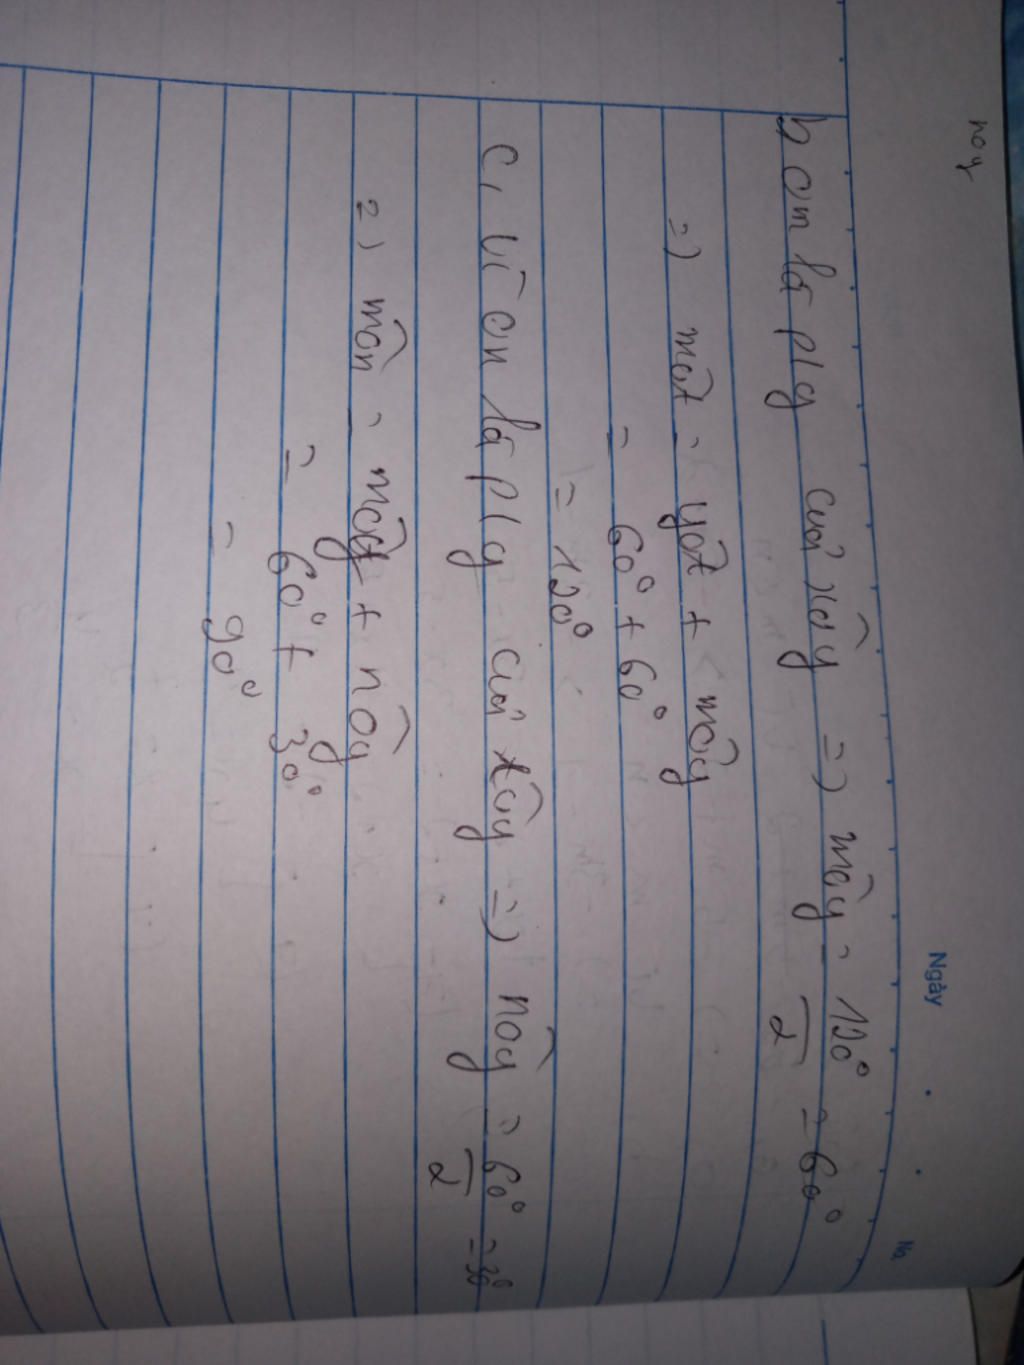 noy
Ngày
No.
b om là plg của xôy => môy = 120°/2 = 60°
=) môt = yôt + môy
= 60° + 60°
= 120°
c, Vì on là plg của tôy =) nôy = 60°/2 = 30°
=) môn = môy + nôy
= 60° + 30°
= 90°